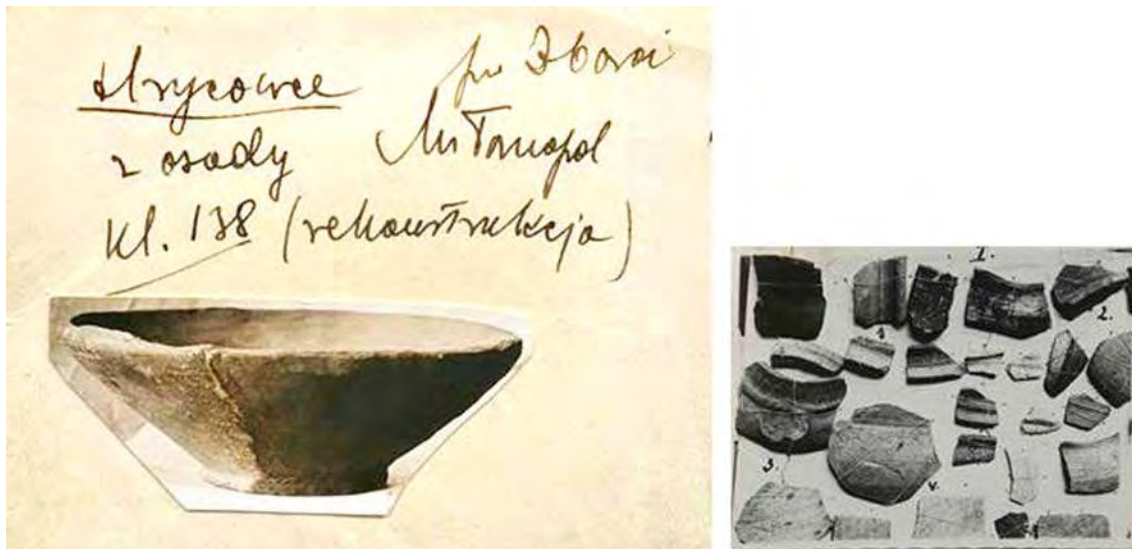 Hrycowce pow Zbaraż
z osady
kl. 138 (rekonstrukcja)
1.
2.
3.